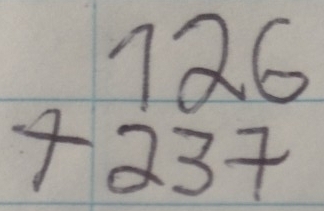 126
+237